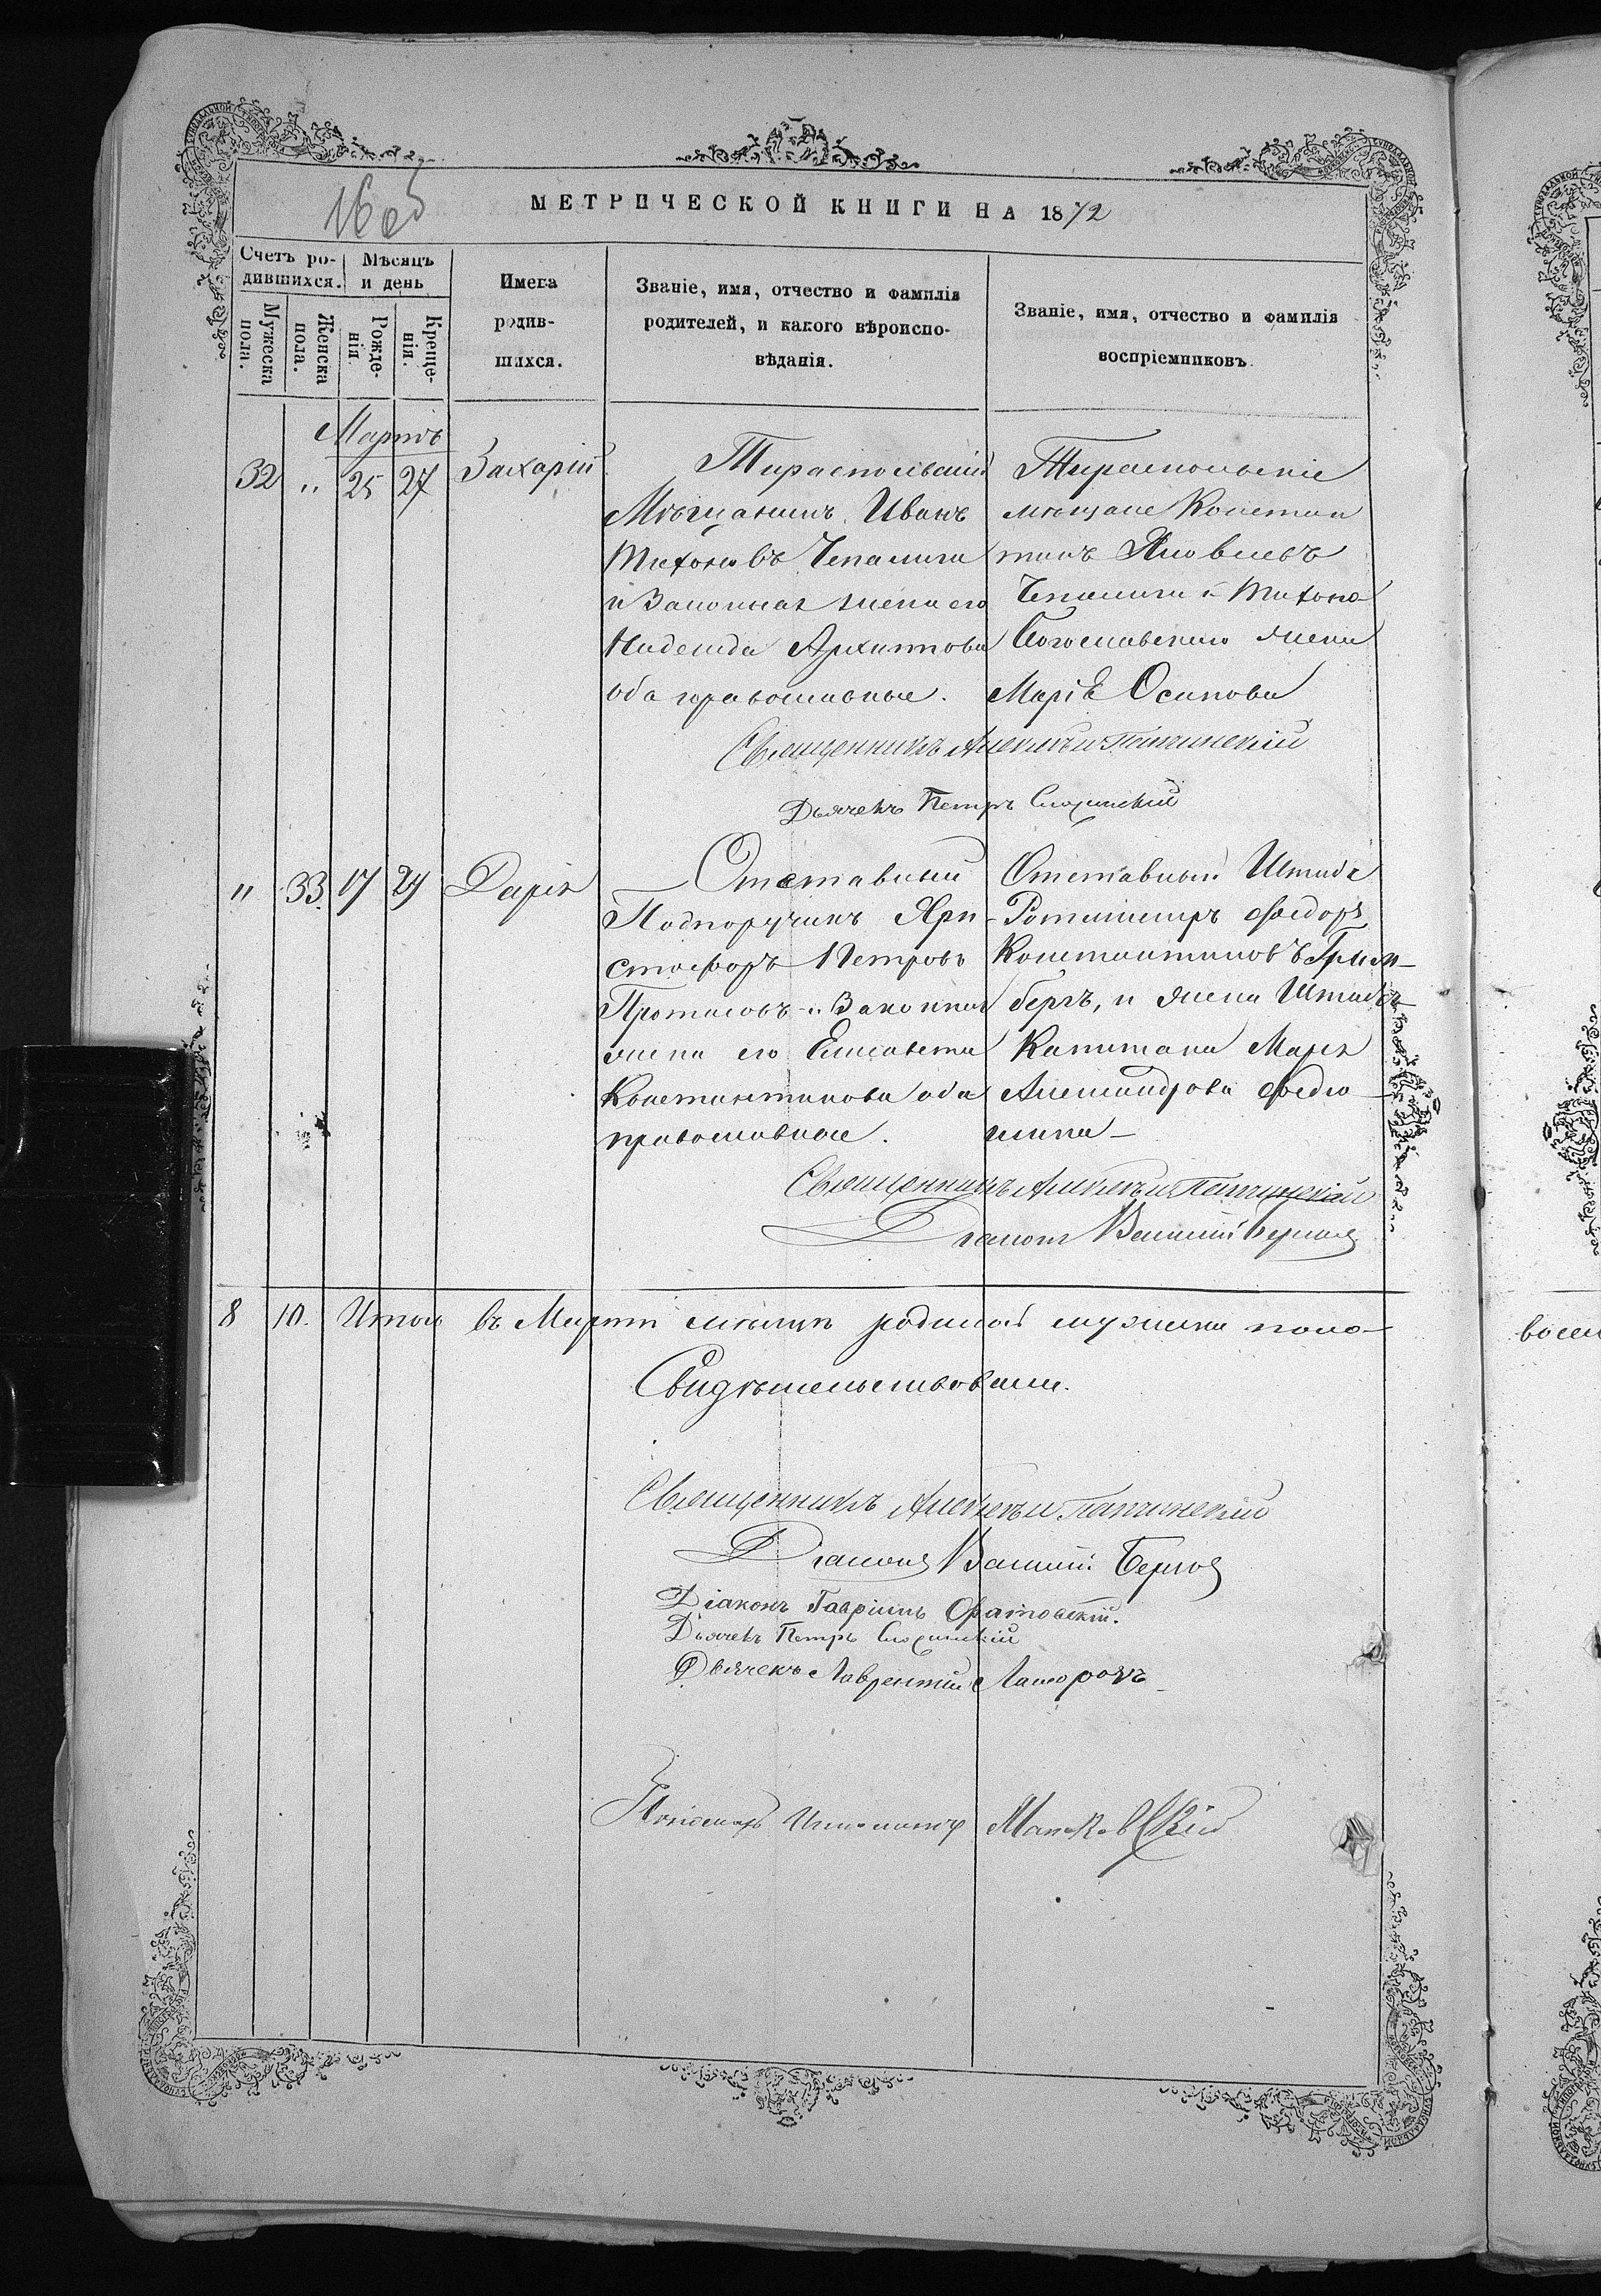 16 об
МЕТРИЧЕСКОЙ КНИГИ НА 1872
Счетъ ро-
дившихся.
Мѣсяцъ
и день
Мужеска
пола.
Женска
пола.
Рожде-
нія.
Креще-
нія.
Имена
родив-
шихся.
Званіе, имя, отчество и фамилія
родителей, и какого вѣроиспо-
вѣданія.
Званіе, имя, отчество и фамилія
воспріемниковъ.
Мартъ
32 „ 25 27 Захарій
Тираспольскій
Мѣщанинъ Иванъ
Тихоновъ Чепалыги
и Законная жена его
Надежда Архипова
оба православные.
Тираспольскіе
мѣщане Констан
тинъ Яковлевъ
Чепалыги и Тихона
Богославскаго жена
Марія Осипова
Священникъ Алексѣй
Дьячекъ Петръ
„ 33. 17 29 Дарія
Отставный
Подпоручикъ Хри-
стофоръ Петровъ
Протасовъ и Законная
жена его Елисавета
Константинова оба
православные.
Отставный Штабъ
Ротмистръ Федоръ
Константиновъ
бергъ, и жена Штабсъ
Капитана Марія
Александрова
Священникъ Алексѣй
Діаконъ Василій
8 10. Итого въ Мартѣ мѣсяцѣ родилось мужеска пола
Свидѣтельствовали.
Священникъ Алексѣй
Діаконъ Василій
Діаконъ Гавріилъ
Дьячекъ Петръ
Дьячекъ Лаврентій